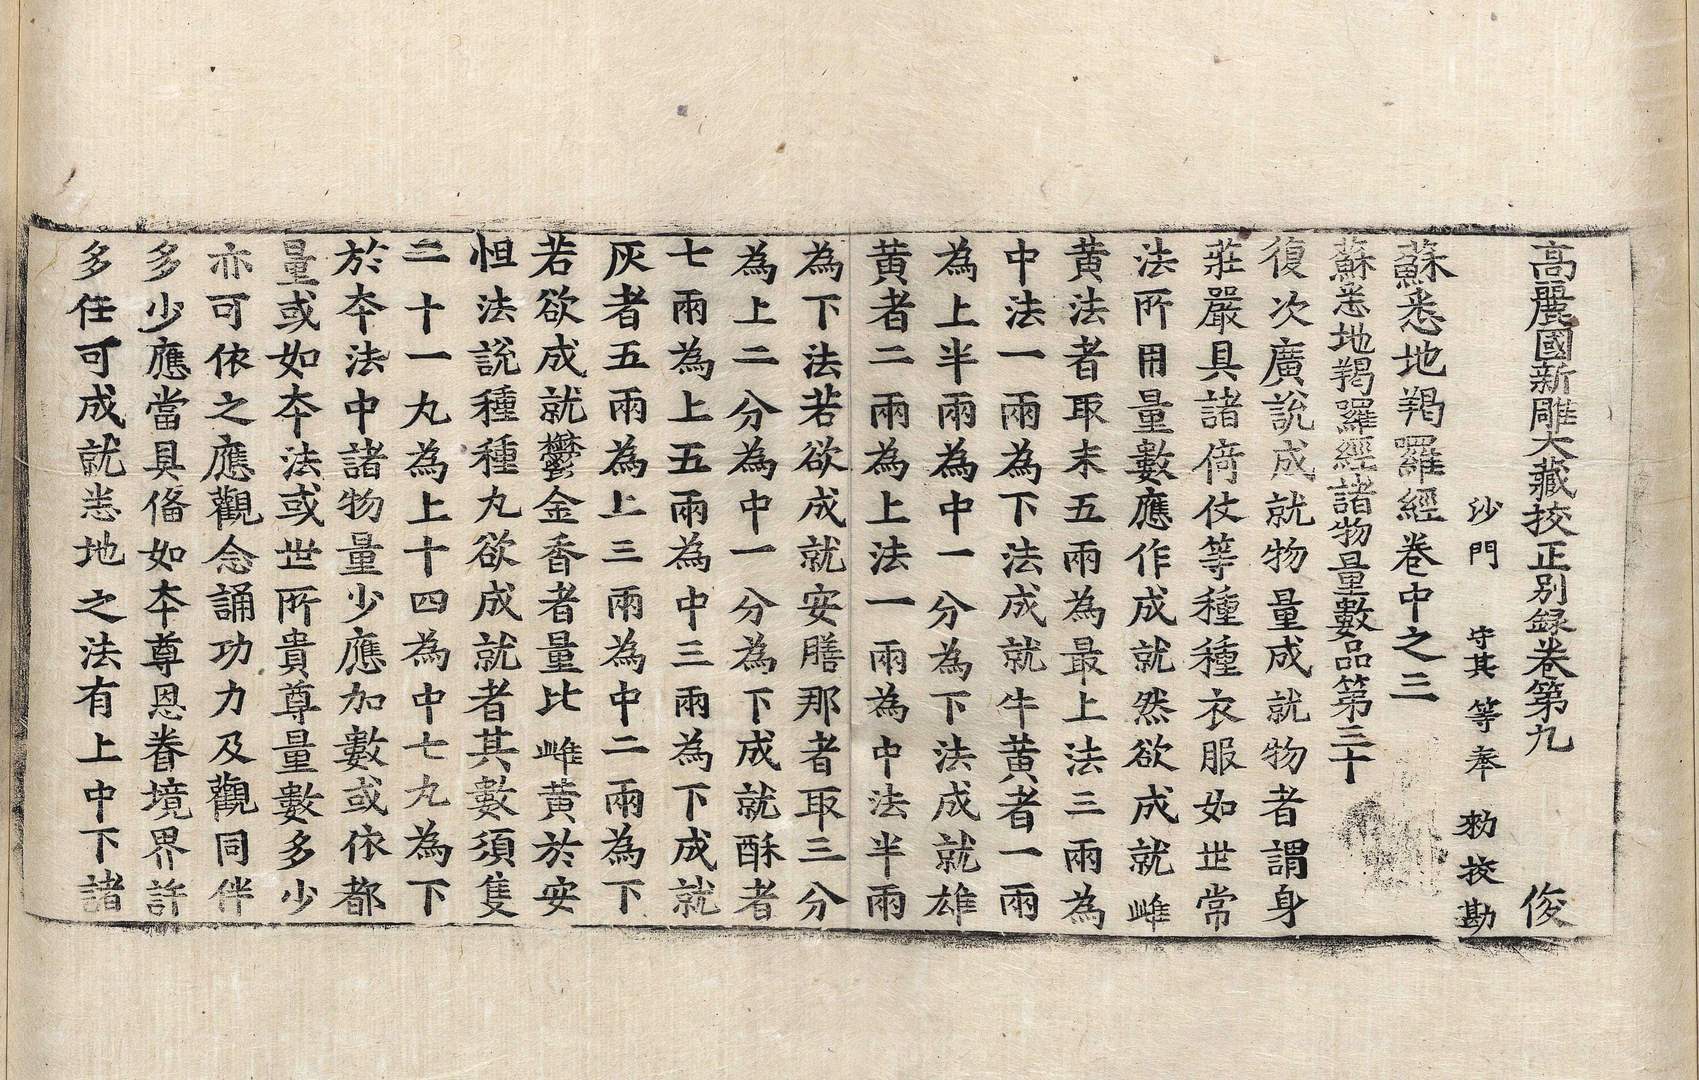 高麗國新雕大藏挍正別錄卷第九 俊
沙門 守其 等奉 勑挍勘
蘇悉地羯囉經卷中之三
蘇悉地羯羅經諸物量數品第三十
復次廣說成就物量成就物者謂身
莊嚴具諸倚仗等種種衣服如世常
法所用量數應作成就然欲成就雌
黃法者取末五兩為最上法三兩為
中法一兩為下法成就牛黃者一兩
為上半兩為中一分為下法成就雄
黃者二兩為上法一兩為中法半兩
為下法若欲成就安膳那者取三分
為上二分為中一分為下成就酥者
七兩為上五兩為中三兩為下成就
灰者五兩為上三兩為中二兩為下
若欲成就欝金香者量比雌黃於安
怛法說種種丸欲成就者其數須隻
二十一丸為上十四為中七丸為下
於夲法中諸物量少應加數或依都
量或如夲法或世所貴尊量數多少
亦可依之應觀念誦功力及觀同伴
多少應當具俻如夲尊恩眷境界許
多任可成就悉地之法有上中下諸